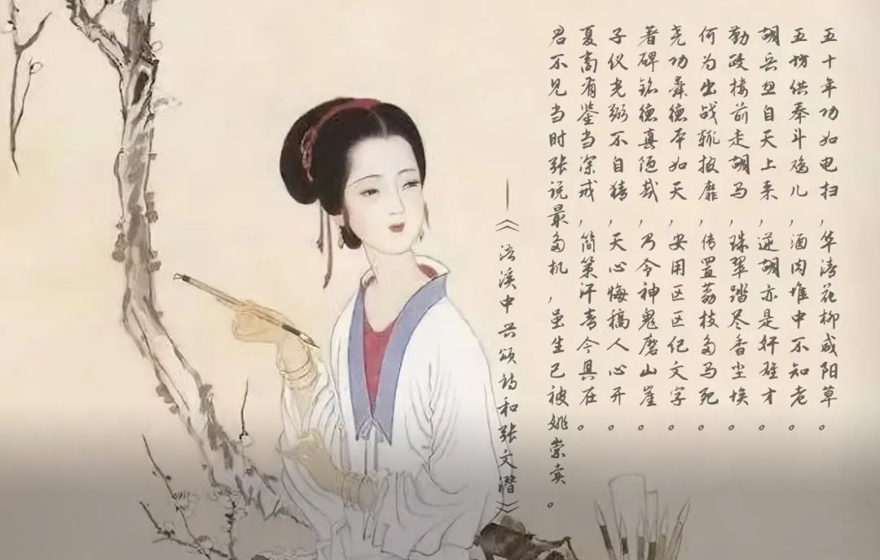 五十年功如电扫,华清花柳咸阳草。
五坊供奉斗鸡儿,酒肉堆中不知老。
胡兵忽自天上来,逆胡亦是奸雄才。
勤政楼前走胡马,珠翠踏尽香尘埃。
何为出战辄披靡,传置荔枝多马死。
尧功舜德本如天,安用区区纪文字。
著碑铭德真陋哉,乃令神鬼磨山崖。
子仪光弼不自猜,天心悔祸人心开。
夏商有鉴当深戒,简策汗青今具在。
君不见当时张说最多机,虽生已被姚崇卖。
—《浯溪中兴颂诗和张文潜》